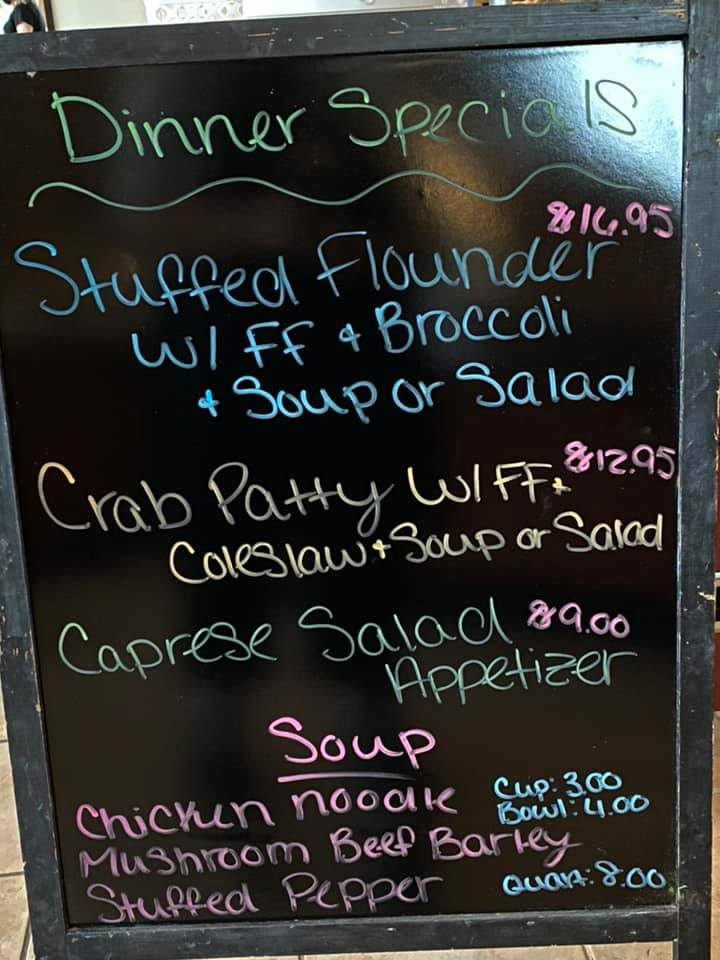 Dinner Specials
$16.95
Stuffed Flounder
W/ FF + Broccoli
+ Soup or Salad
Crab Patty W/ FF + $12.95
Coleslaw + Soup or Salad
Caprese Salad $9.00
Appetizer
Soup
Chicken noodle Cup: 3.00
Bowl: 4.00
Mushroom Beef Barley
Stuffed Pepper Quart: 8.00